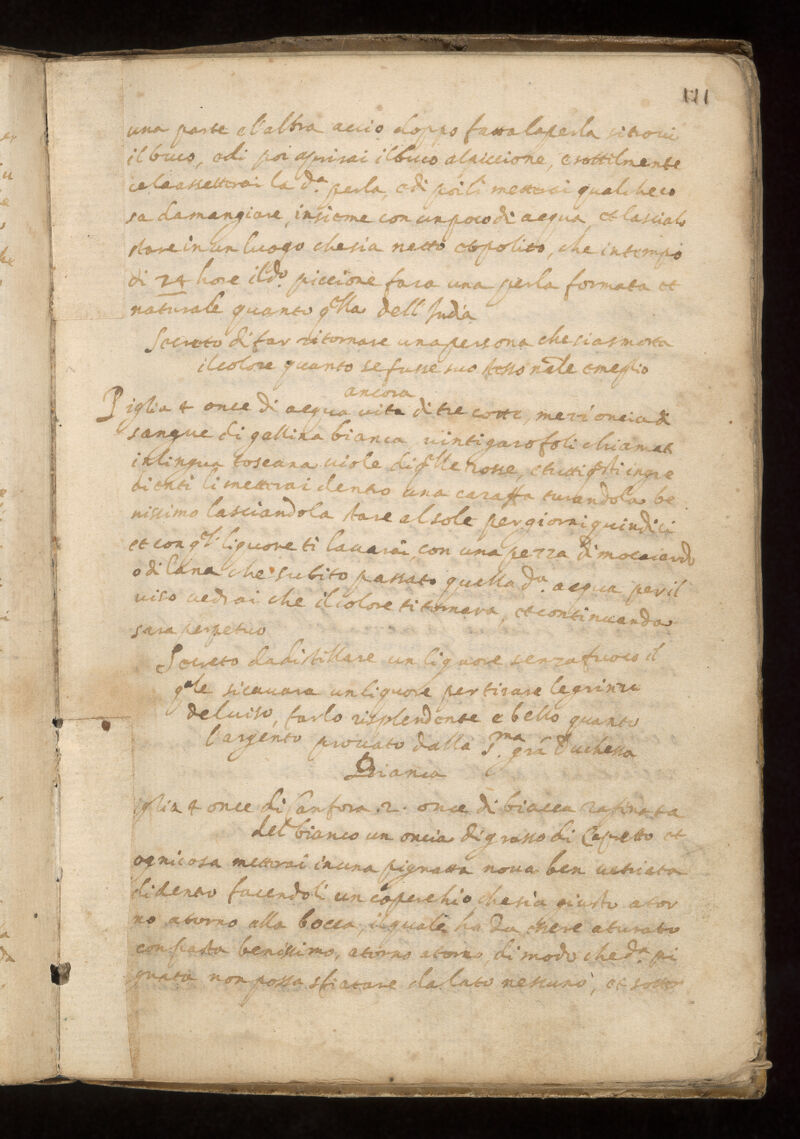 111
una parte e l'altra acciò doppo fatta la perla si trovi
il buco, e di poi aprirai il buco al piccione, e sottilmente
ce la assetterai la d.ª perla, e di poi li metterai qualche co
sa da mangiare, insieme con un poco di acqua, et lascialo
stare in un luogo che sia netto et polito, che in tempo
di 24 hore il d.º piccione fara una perla formata et
naturale quanto q.lla dell'India
Secreto di far ritornare una persona che sia smorta
il colore quanto se fusse suo stesso n̄ale e meglio
ancora
Piglia 4 once di acqua vita di tre cotte, mezz'oncia di
sangue di gallina bianca, vinti garofoli chiamati
in lingua toscana viole di q.lle rosse, e tutti q.sti ingre
dienti li metterai dentro una caraffa turandola be
nissimo lasciandola stare al sole per giorni quindici
et con q.l liquore ti lavarai, con una pezza di mocaiardo
o di lana che subito passato quella d.ª acqua per il
viso vedrai che il colore ti tornera, et continuando
sara perpetuo
Secreto da distillare un liquore senza fuoco il
q.ale si cavara un liquore per tirare le grinze
del viso, farlo risplendente e bello quanto
l'argento provato dalla S.ma grã Duchessa
Bianca
iglia 4 once di Canfora, 2. once di biacca rafinata
del bianco un oncia di grasso di Capretto et
ogni cosa metterai in una pignatta nova ben vetriata
di dentro facendoli un coperchio che sia giusto ator
no atorno alla bocca, il quale ha da essere aturato
con pasta benissimo, atorno atorno, di modo che d.ª pi
gnata non possa sfiatare da lato nessuno, et sotto